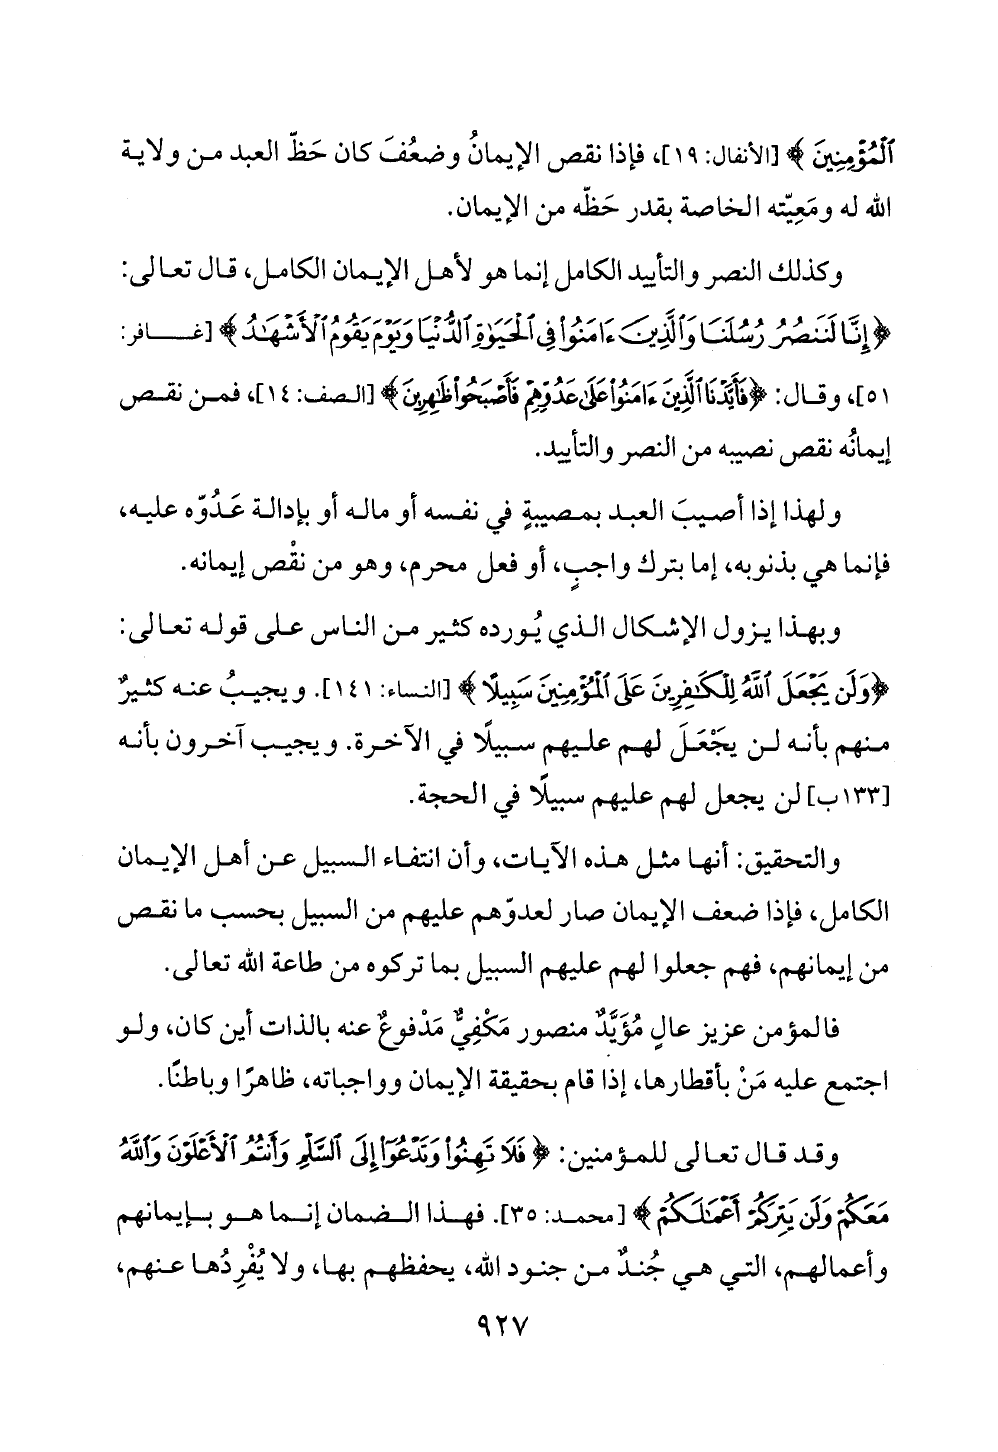 ٱلْمُؤْمِنِينَ ﴾ [الأنفال: ١٩]، فإذا نقص الإيمانُ وضعُفَ كان حَظّ العبد من ولاية
الله له ومَعِيّته الخاصة بقدر حَظّه من الإيمان.
وكذلك النصر والتأييد الكامل إنما هو لأهل الإيمان الكامل، قال تعالى:
﴿ إِنَّا لَنَنصُرُ رُسُلَنَا وَٱلَّذِينَ ءَامَنُوا۟ فِى ٱلْحَيَوٰةِ ٱلدُّنْيَا وَيَوْمَ يَقُومُ ٱلْأَشْهَـٰدُ ﴾ [غافر:
٥١]، وقال: ﴿فَأَيَّدْنَا ٱلَّذِينَ ءَامَنُوا۟ عَلَىٰ عَدُوِّهِمْ فَأَصْبَحُوا۟ ظَـٰهِرِينَ﴾ [الصف: ١٤]، فمن نقص
إيمانُه نقص نصيبه من النصر والتأييد.
ولهذا إذا أصيبَ العبد بمصيبةٍ في نفسه أو ماله أو بإدالة عَدُوّه عليه،
فإنما هي بذنوبه، إما بترك واجبٍ، أو فعل محرم، وهو من نقْص إيمانه.
وبهذا يزول الإشكال الذي يُورده كثير من الناس على قوله تعالى:
﴿وَلَن يَجْعَلَ ٱللَّهُ لِلْكَـٰفِرِينَ عَلَى ٱلْمُؤْمِنِينَ سَبِيلًا ﴾ [النساء: ١٤١]. ويجيبُ عنه كثيرٌ
منهم بأنه لن يجْعَلَ لهم عليهم سبيلًا في الآخرة. ويجيب آخرون بأنه
[١٣٣ب] لن يجعل لهم عليهم سبيلًا في الحجة.
والتحقيق: أنها مثل هذه الآيات، وأن انتفاء السبيل عن أهل الإيمان
الكامل، فإذا ضعف الإيمان صار لعدوّهم عليهم من السبيل بحسب ما نقص
من إيمانهم، فهم جعلوا لهم عليهم السبيل بما تركوه من طاعة الله تعالى.
فالمؤمن عزيز عالٍ مُؤَيَّدٌ منصور مَكْفِيٌّ مَدْفوعٌ عنه بالذات أين كان، ولو
اجتمع عليه مَنْ بأقطارها، إذا قام بحقيقة الإيمان وواجباته، ظاهرًا وباطنًا.
وقد قال تعالى للمؤمنين: ﴿ فَلَا تَهِنُوا۟ وَتَدْعُوٓا۟ إِلَى ٱلسَّلْمِ وَأَنتُمُ ٱلْأَعْلَوْنَ وَٱللَّهُ
مَعَكُمْ وَلَن يَتِرَكُمْ أَعْمَـٰلَكُمْ ﴾ [محمد: ٣٥]. فهذا الضمان إنما هو بإيمانهم
وأعمالهم، التي هي جُندٌ من جنود الله، يحفظهم بها، ولا يُفْرِدُها عنهم،
٩٢٧